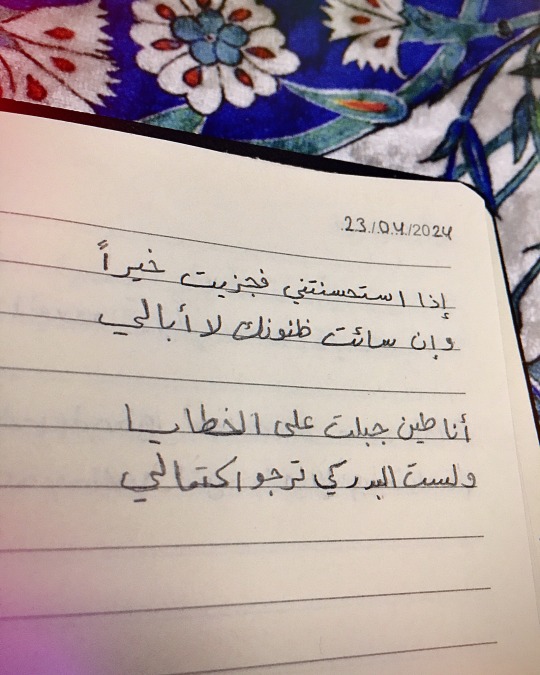 23/04/2024
إذا استحسنتني فجزيت خيراً
وإن سائت ظنونك لا أبالي
أنا طين جبلت على الخطايا
ولست البدر كي ترجو اكتمالي